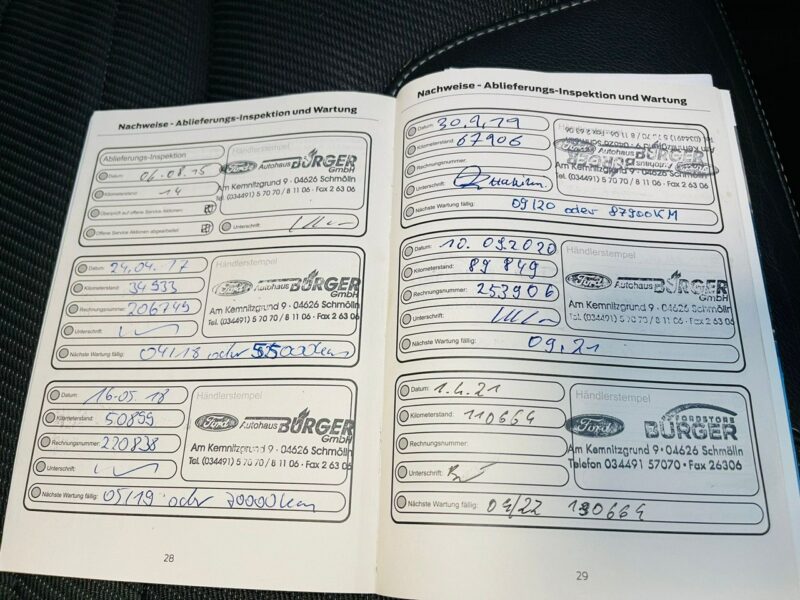 Nachweise - Ablieferungs-Inspektion und Wartung
Ablieferungs-Inspektion
Händlerstempel
Datum: 06.08.15
Ford Autohaus BÜRGER GmbH
Kilometerstand: 14
Am Kemnitzgrund 9 · 04626 Schmölln
Tel. (034491) 5 70 70 / 8 11 06 · Fax 2 63 06
Überprüft auf offene Service Aktionen:
Offene Service Aktionen abgearbeitet:
Unterschrift:
Datum: 24.04.17
Händlerstempel
Kilometerstand: 34933
Ford Autohaus BÜRGER GmbH
Rechnungsnummer: 206749
Am Kemnitzgrund 9 · 04626 Schmölln
Tel. (034491) 5 70 70 / 8 11 06 · Fax 2 63 06
Unterschrift:
Nächste Wartung fällig: 04/18 oder 55000km
Datum: 16.05.18
Händlerstempel
Kilometerstand: 50899
Ford Autohaus BÜRGER GmbH
Rechnungsnummer: 220838
Am Kemnitzgrund 9 · 04626 Schmölln
Tel. (034491) 5 70 70 / 8 11 06 · Fax 2 63 06
Unterschrift:
Nächste Wartung fällig: 05/19 oder 70000km
28
Nachweise - Ablieferungs-Inspektion und Wartung
Datum: 30.9.19
Händlerstempel
Kilometerstand: 67906
Rechnungsnummer:
Am Kemnitzgrund 9 · 04626 Schmölln
Tel. (034491) 5 70 70 / 8 11 06 · Fax 2 63 06
Unterschrift:
Nächste Wartung fällig: 09/20 oder 87900KM
Datum: 10.09.2020
Händlerstempel
Kilometerstand: 89849
Ford Autohaus BÜRGER GmbH
Rechnungsnummer: 253906
Am Kemnitzgrund 9 · 04626 Schmölln
Tel. (034491) 5 70 70 / 8 11 06 · Fax 2 63 06
Unterschrift:
Nächste Wartung fällig: 09.21
Datum: 1.4.21
Händlerstempel
Kilometerstand: 110664
Ford FORDSTORE BÜRGER
Rechnungsnummer:
Am Kemnitzgrund 9 · 04626 Schmölln
Telefon 034491 57070 · Fax 26306
Unterschrift:
Nächste Wartung fällig: 04/22 130664
29